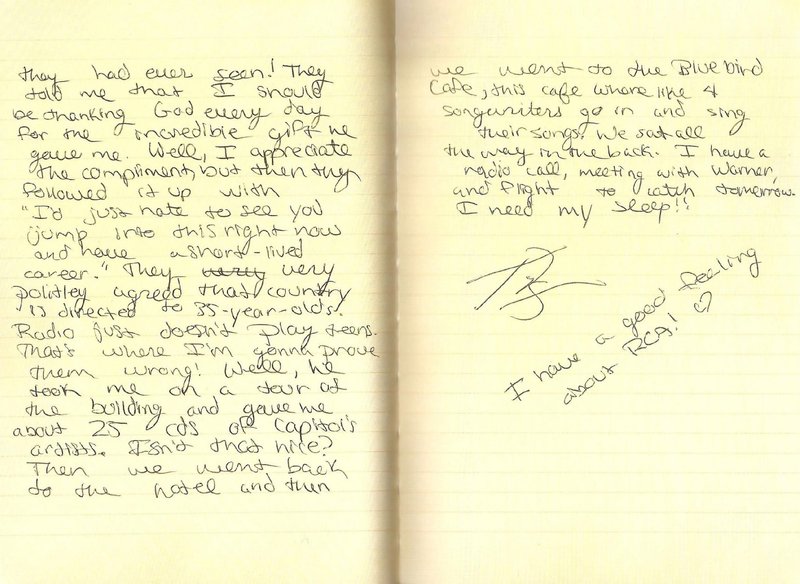 they had ever seen! They
told me that I should
be thanking God every day
for the incredible gift he
gave me. Well, I appreciate
the compliment, but then they
followed it up with
"I'd just hate to see you
jump into this right now
and have a short-lived
career." They very very
politley agreed that country
is directed to 35-year-olds.
Radio just doesn't play teens.
That's where I'm gonna prove
them wrong! Well, he
took me on a tour of
the building and gave me
about 25 cds of Capitol's
artists. Isn't that nice?
Then we went back
to the hotel and then
we went to the Bluebird
Cafe, this cafe where like 4
songwriters go in and sing
their songs. We sat all
the way in the back. I have a
radio call, meeting with Warner,
and flight to catch tomorrow.
I need my sleep!!
I have a good feeling
about RCA! ♡